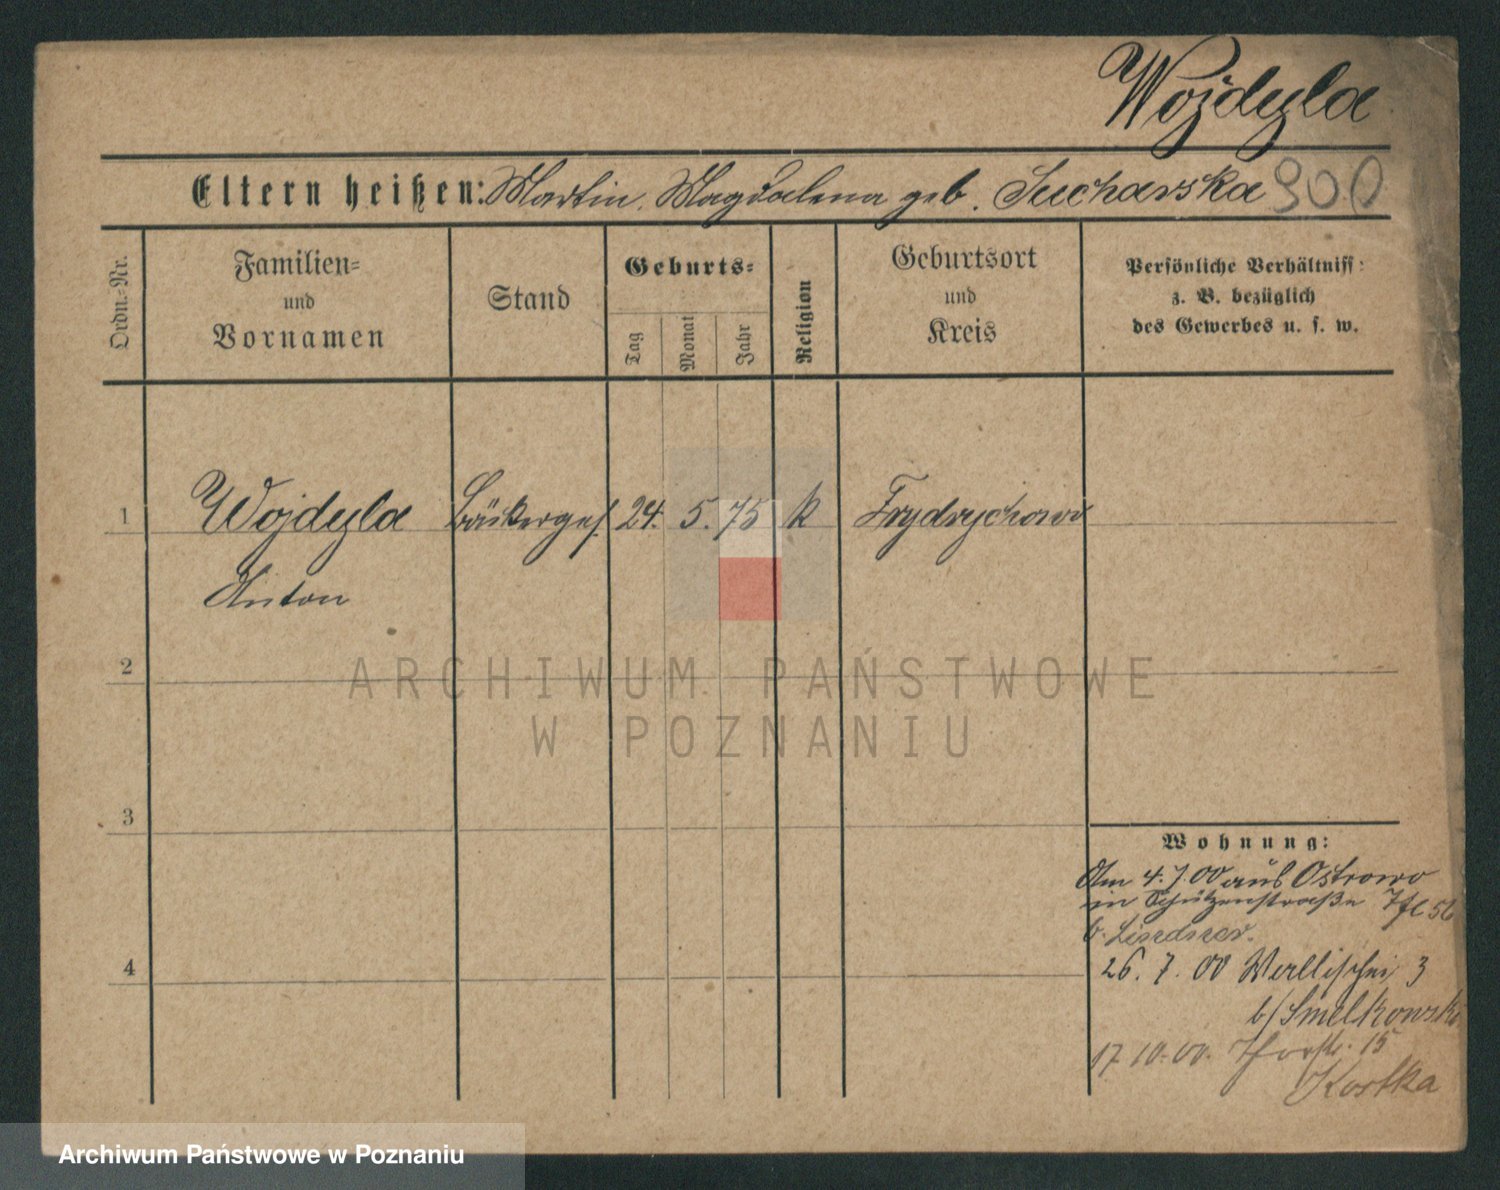 Wojdyla
Eltern heißen: Martin, Magdalena geb. Sucharska 900
Ordn.-Nr.
Familien-
und
Vornamen
Stand
Geburts-
Tag
Monat
Jahr
Religion
Geburtsort
und
Kreis
Persönliche Verhältniss
z. B. bezüglich
des Gewerbes u. s. w.
1 Wojdyla Bäckerges. 24. 5. 75 k Frydrychow
Anton
2
3
4
Wohnung:
Am 4.7.00 aus Ostrowo
in Schützenstraße
26. 7. 00 Wallischei 3
b/ Smelkowski
17 10. 00. 15
Kostka
ARCHIWUM PAŃSTWOWE
W POZNANIU
Archiwum Państwowe w Poznaniu